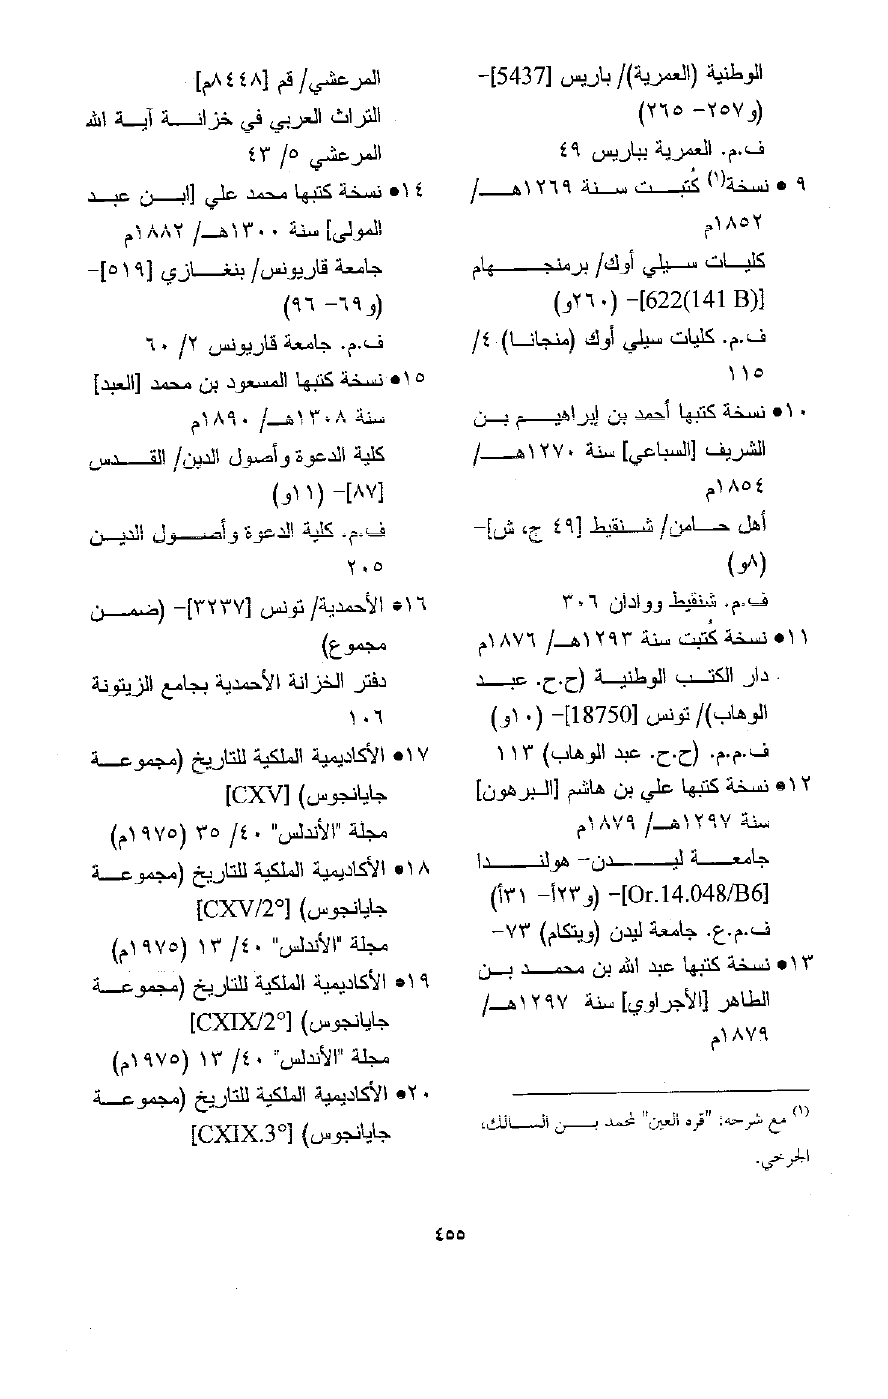 الوطنية (العمرية)/ باريس [5437]-
(و٢٥٧- ٢٦٥)
ف.م. العمرية بباريس ٤٩
٩ • نسخة(١) كُتبت سنة ١٢٦٩هـ/
١٨٥٢م
كليات سيلي أوك/ برمنجهام
[622(141 B)]- (٢٦٠و)
ف.م. كليات سيلي أوك (منجانا) ٤/
١١٥
١٠• نسخة كتبها أحمد بن إبراهيم بن
الشريف [السباعي] سنة ١٢٧٠هـ/
١٨٥٤م
أهل حامن/ شنقيط [٤٩ ج، ش]-
(٨و)
ف.م. شنقيط ووادان ٣٠٦
١١• نسخة كُتبت سنة ١٢٩٣هـ/ ١٨٧٦م
دار الكتب الوطنية (ح.ح. عبد
الوهاب)/ تونس [18750]- (١٠و)
ف.م.م. (ح.ح. عبد الوهاب) ١١٣
١٢• نسخة كتبها علي بن هاشم [البرهون]
سنة ١٢٩٧هـ/ ١٨٧٩م
جامعة ليدن- هولندا
[Or.14.048/B6]- (و٢٣أ- ٣١أ)
ف.م.ع. جامعة ليدن (ويتكام) ٧٣-
١٣• نسخة كتبها عبد الله بن محمد بن
الطاهر [الأجراوي] سنة ١٢٩٧هـ/
١٨٧٩م
(١) مع شرحه: "قره العين" لمحمد بن السالك،
الجرخي.
المرعشي/ قم [٨٤٤٨م]
التراث العربي في خزانة آية الله
المرعشي ٥/ ٤٣
١٤• نسخة كتبها محمد علي [ابن عبد
المولى] سنة ١٣٠٠هـ/ ١٨٨٢م
جامعة قاريونس/ بنغازي [٥١٩]-
(و٦٩- ٩٦)
ف.م. جامعة قاريونس ٢/ ٦٠
١٥• نسخة كتبها المسعود بن محمد [العبد]
سنة ١٣٠٨هـ/ ١٨٩٠م
كلية الدعوة وأصول الدين/ القدس
[٨٧]- (١١و)
ف.م. كلية الدعوة وأصول الدين
٢٠٥
١٦• الأحمدية/ تونس [٣٢٣٧]- (ضمن
مجموع)
دفتر الخزانة الأحمدية بجامع الزيتونة
١٠٦
١٧• الأكاديمية الملكية للتاريخ (مجموعة
جايانجوس) [CXV]
مجلة "الأندلس" ٤٠/ ٣٥ (١٩٧٥م)
١٨• الأكاديمية الملكية للتاريخ (مجموعة
جايانجوس) [CXV/2°]
مجلة "الأندلس" ٤٠/ ١٣ (١٩٧٥م)
١٩• الأكاديمية الملكية للتاريخ (مجموعة
جايانجوس) [CXIX/2°]
مجلة "الأندلس" ٤٠/ ١٣ (١٩٧٥م)
٢٠• الأكاديمية الملكية للتاريخ (مجموعة
جايانجوس) [CXIX.3°]
٤٥٥